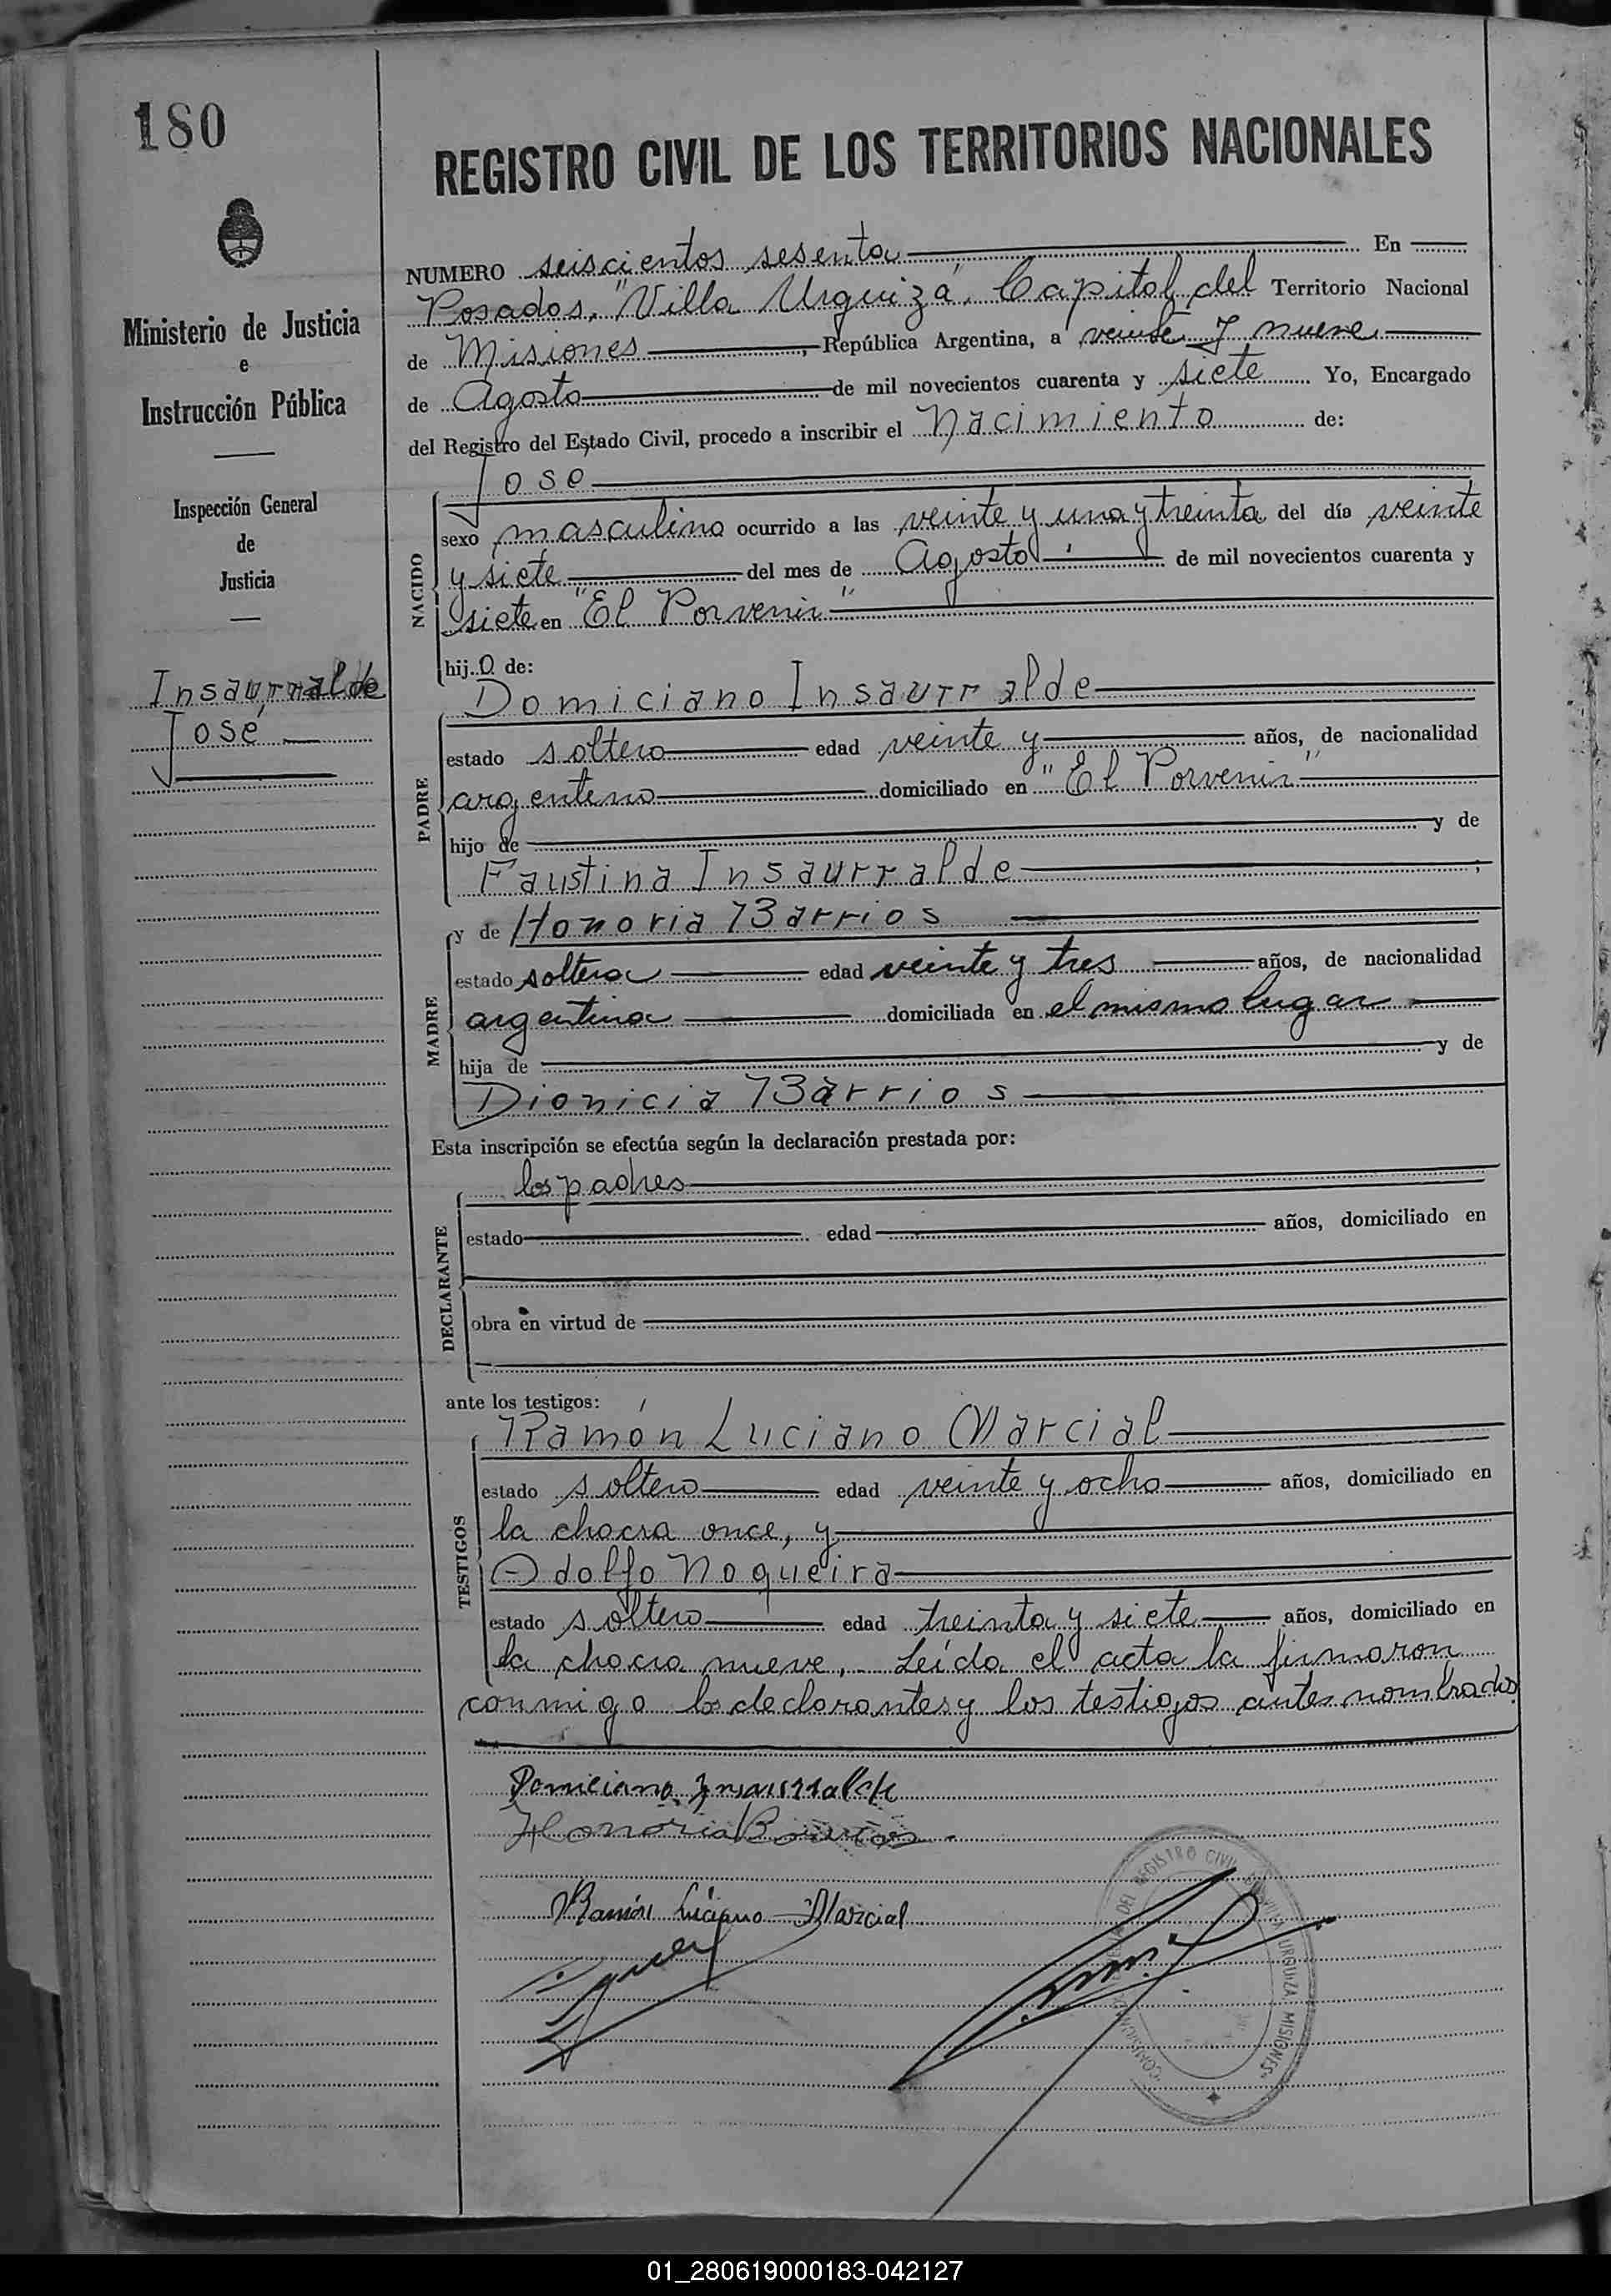 180
REGISTRO CIVIL DE LOS TERRITORIOS NACIONALES
Ministerio de Justicia
e
Instrucción Pública
Inspección General
de
Justicia
Insaurralde
José
NUMERO seiscientos sesenta En
Posadas, "Villa Urquiza", Capital del Territorio Nacional
de Misiones, República Argentina, a veinte y nueve
de Agosto de mil novecientos cuarenta y siete Yo, Encargado
del Registro del Estado Civil, procedo a inscribir el Nacimiento de:
NACIDO
José
sexo masculino ocurrido a las veinte y una y treinta del día veinte
y siete del mes de Agosto de mil novecientos cuarenta y
siete en "El Porvenir"
hijo de:
PADRE
Domiciano Insaurralde
estado soltero edad veinte y años, de nacionalidad
argentino domiciliado en "El Porvenir"
hijo de y de
Faustina Insaurralde ;
MADRE
y de Honoria Barrios
estado soltera edad veinte y tres años, de nacionalidad
argentina domiciliada en el mismo lugar
hija de y de
Dionicia Barrios
Esta inscripción se efectúa según la declaración prestada por:
DECLARANTE
los padres
estado edad años, domiciliado en
obra en virtud de
ante los testigos:
TESTIGOS
Ramón Luciano Marcial
estado soltero edad veinte y ocho años, domiciliado en
la chacra once, y
Adolfo Noqueira
estado soltero edad treinta y siete años, domiciliado en
la chacra nueve. Leída el acta la firmaron
conmigo los declarantes y los testigos antes nombrados
Domiciano Insaurralde
Honoria Barrios
Ramón Luciano Marcial
DEL REGISTRO CIVIL URQUIZA MISIONES
01_280619000183-042127